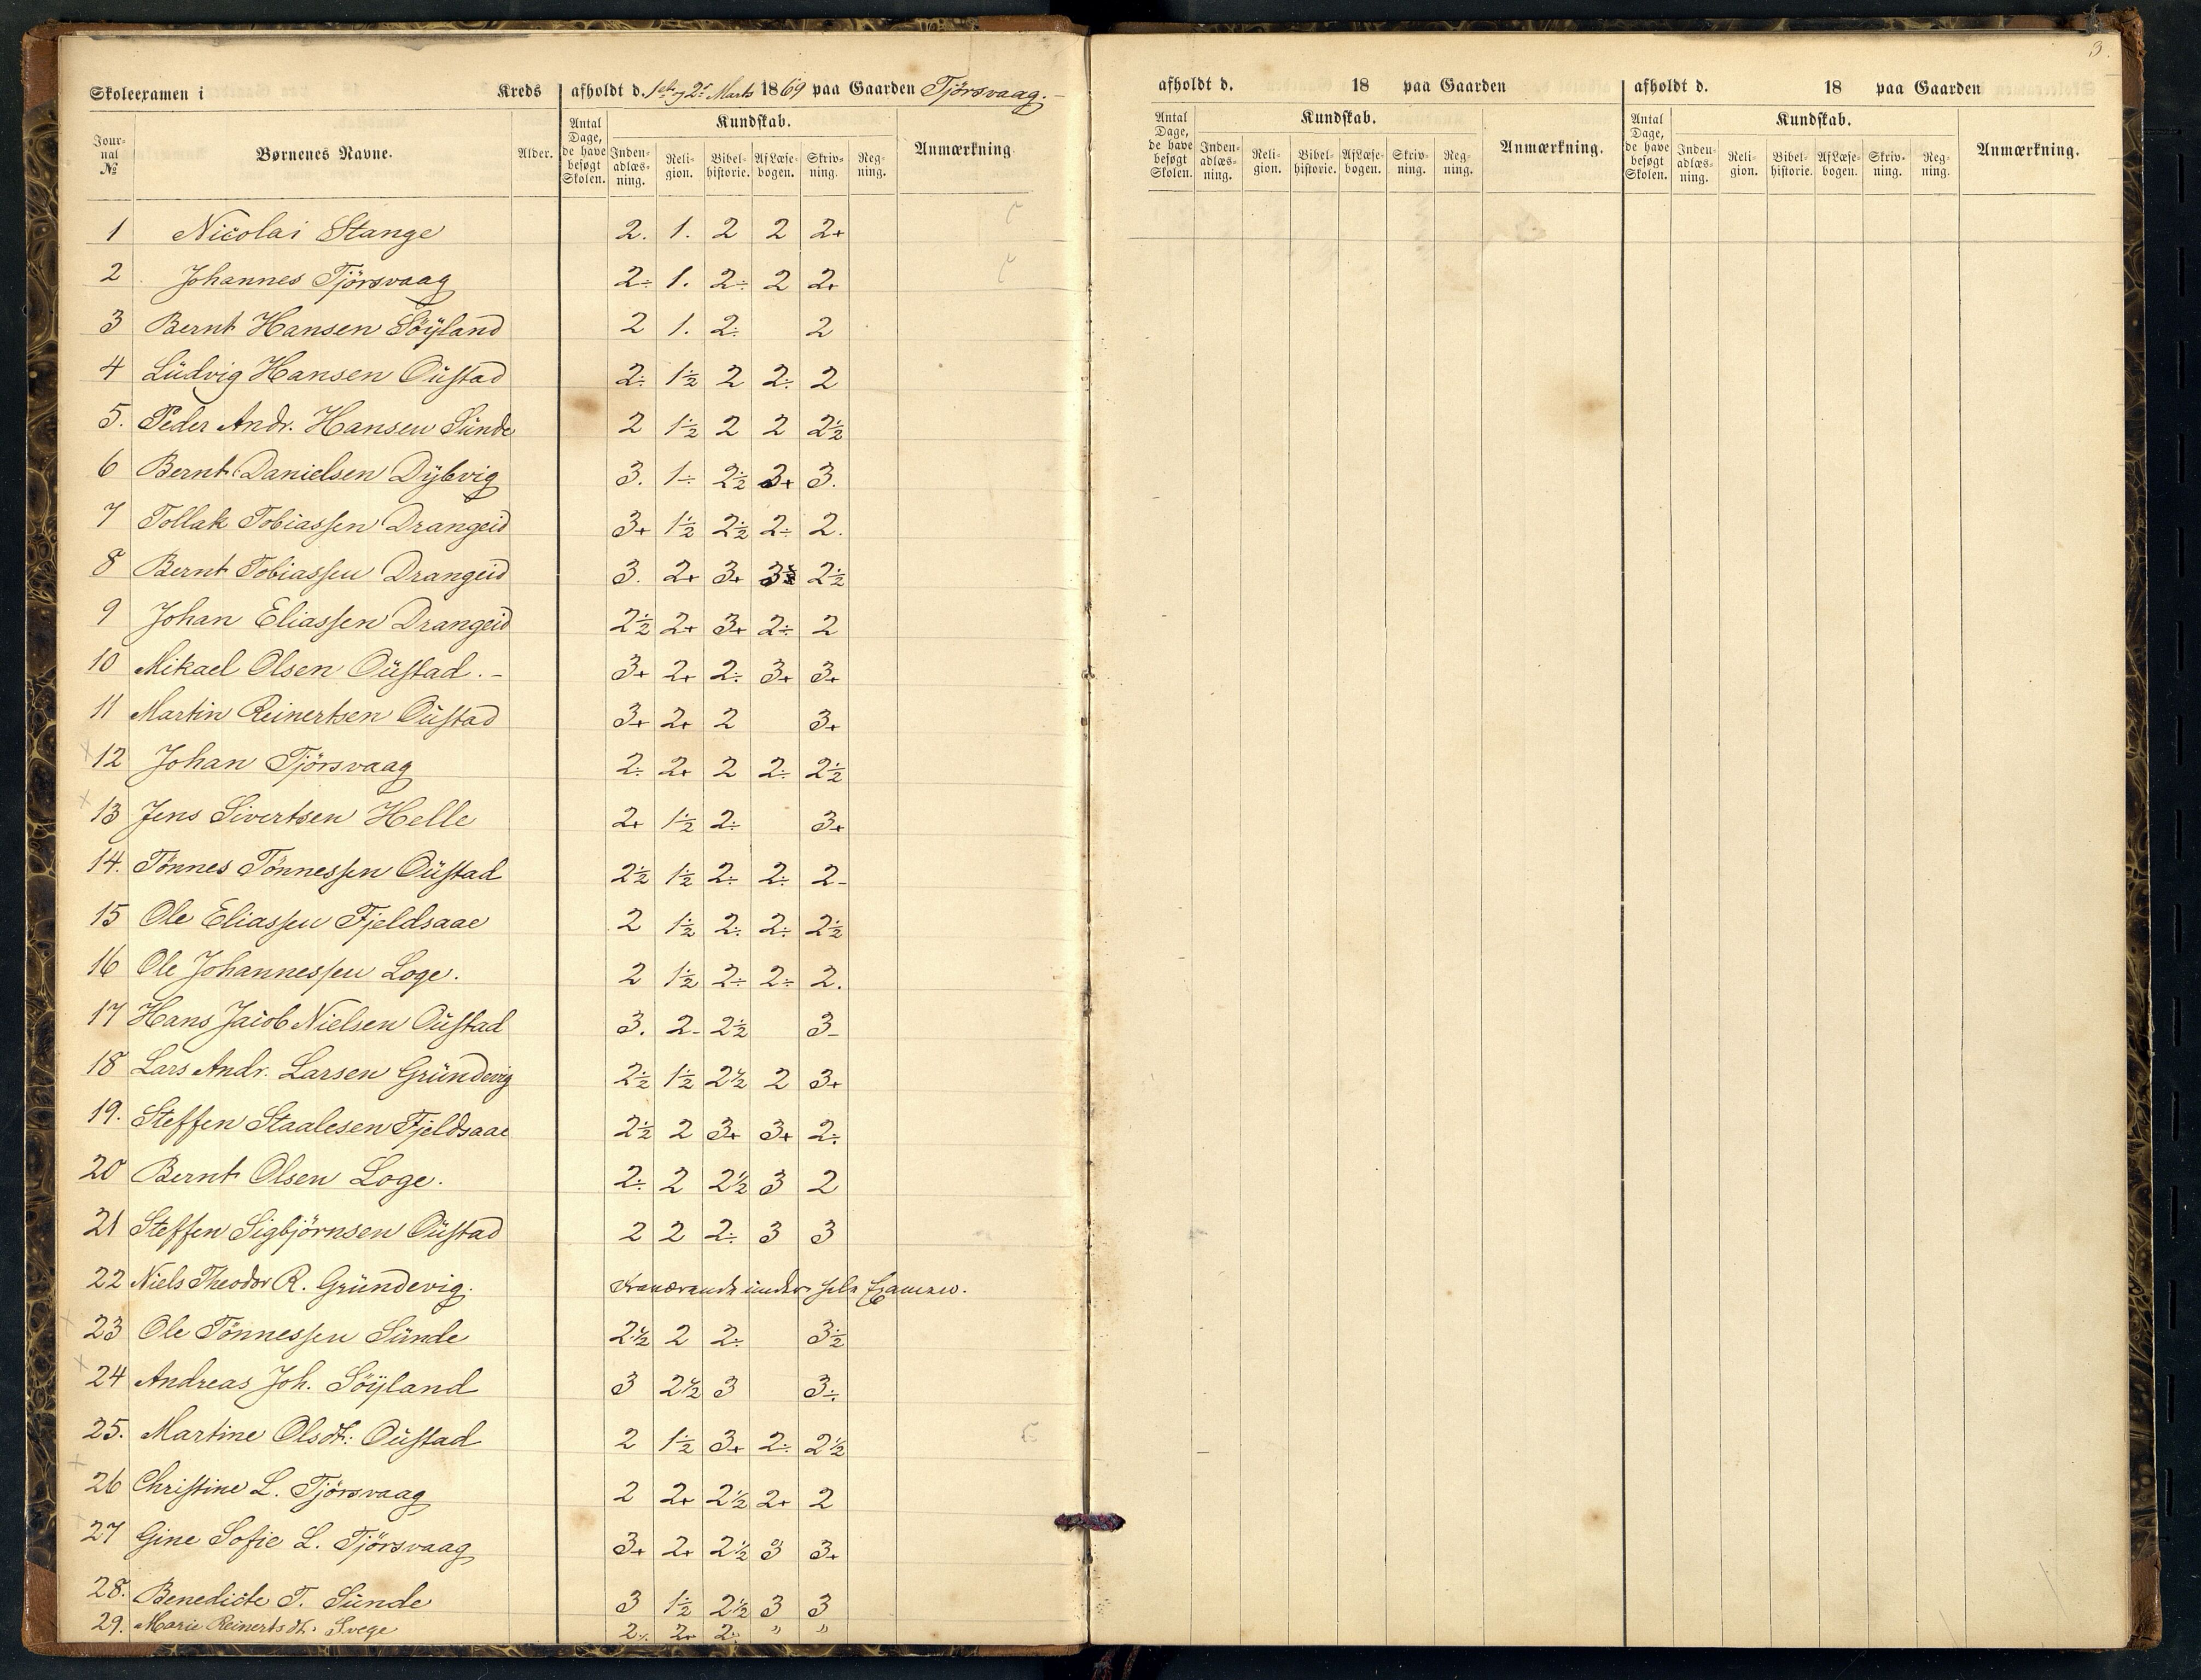 3
Skoleexamen i Kreds afholdt d. 1ste og 2den Marts 1869 paa Gaarden Tjörsvaag.
Jour-nal № Børnenes Navne. Alder. Antal Dage, de have besøgt Skolen. Kundskab. Anmærkning.
Inden-adlæs-ning. Reli-gion. Bibel-historie. Af Læse-bogen. Skriv-ning. Reg-ning.
1 Nicolai Stange 2. 1. 2 2 2+
2 Johannes Tjörsvaag 2÷ 1. 2÷ 2 2+
3 Bernt Hansen Söÿland 2 1. 2÷ 2
4 Lüdvig Hansen Oüstad 2÷ 1½ 2 2÷ 2
5. Peder Andr. Hansen Sünde 2 1½ 2 2 2½
6 Bernt Danielsen Dÿbvig 3. 1÷ 2½ 3+ 3.
7 Tollak Tobiassen Drangeid 3+ 1½ 2½ 2÷ 2.
8 Bernt Tobiassen Drangeid 3. 2+ 3+ 3½ 2½
9 Johan Eliassen Drangeid 2½ 2+ 3+ 2÷ 2
10 Mikael Olsen Oüstad.- 3+ 2+ 2÷ 3+ 3+
11 Martin Reinertsen Oüstad 3+ 2+ 2 3+
x 12 Johan Tjörsvaag 2÷ 2+ 2 2÷ 2½
x 13 Jens Sivertsen Helle 2+ 1½ 2÷ 3+
14. Tönnes Tönnessen Oüstad 2½ 1½ 2÷ 2÷ 2-
15 Ole Eliassen Fjeldsaae 2 1½ 2÷ 2÷ 2½
16 Ole Johannessen Loge. 2 1½ 2÷ 2÷ 2.
17 Hans Jacob Nielsen Oüstad 3. 2- 2½ 3-
18 Lars Andr. Larsen Gründevig 2½ 1½ 2½ 2 3+
19. Steffen Staalesen Fjeldsaae 2½ 2 3+ 3+ 2÷
20 Bernt Olsen Loge. 2÷ 2 2½ 3 2
21 Steffen Sigbjörnsen Oüstad 2 2 2÷ 3 3
22 Niels Theodor R. Gründevig. fraværende ünder Examen.
x 23 Ole Tönnessen Sünde 2½ 2 2÷ 3½
x 24 Andreas Joh. Söÿland 3 2½ 3 3÷
25. Martine Olsdt: Oüstad 2 1½ 3+ 2÷ 2½
x 26 Christine L. Tjörsvaag 2 2+ 2½ 2+ 2
x 27 Gine Sofie L. Tjörsvaag 3+ 2+ 2½ 3 3+
28. Benedicte T. Sünde 3 1½ 2½ 3 3
29. Marie Reinertsdt. Svege 2÷ 2+ 2÷ " "
afholdt d. 18 paa Gaarden
Antal Dage, de have besøgt Skolen. Kundskab. Anmærkning.
Inden-adlæs-ning. Reli-gion. Bibel-historie. Af Læse-bogen. Skriv-ning. Reg-ning.
afholdt d. 18 paa Gaarden
Antal Dage, de have besøgt Skolen. Kundskab. Anmærkning.
Inden-adlæs-ning. Reli-gion. Bibel-historie. Af Læse-bogen. Skriv-ning. Reg-ning.